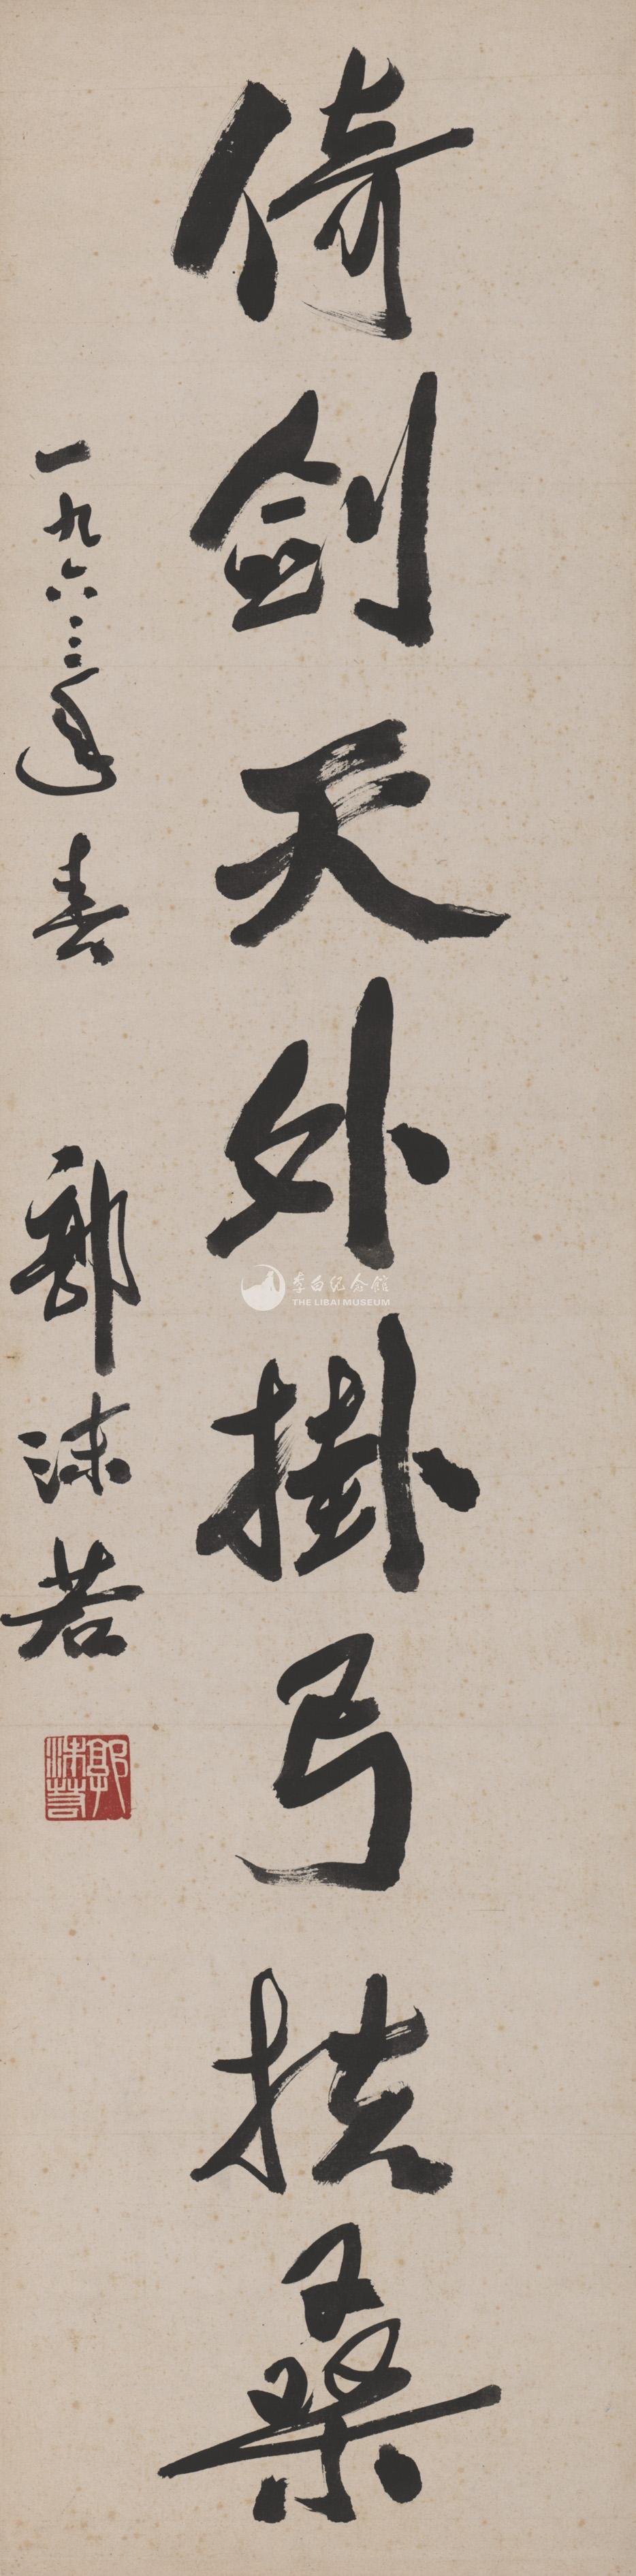 倚剑天外掛弓扶桑
一九六三年春 郭沫若
郭沫若
李白纪念馆
THE LIBAI MUSEUM